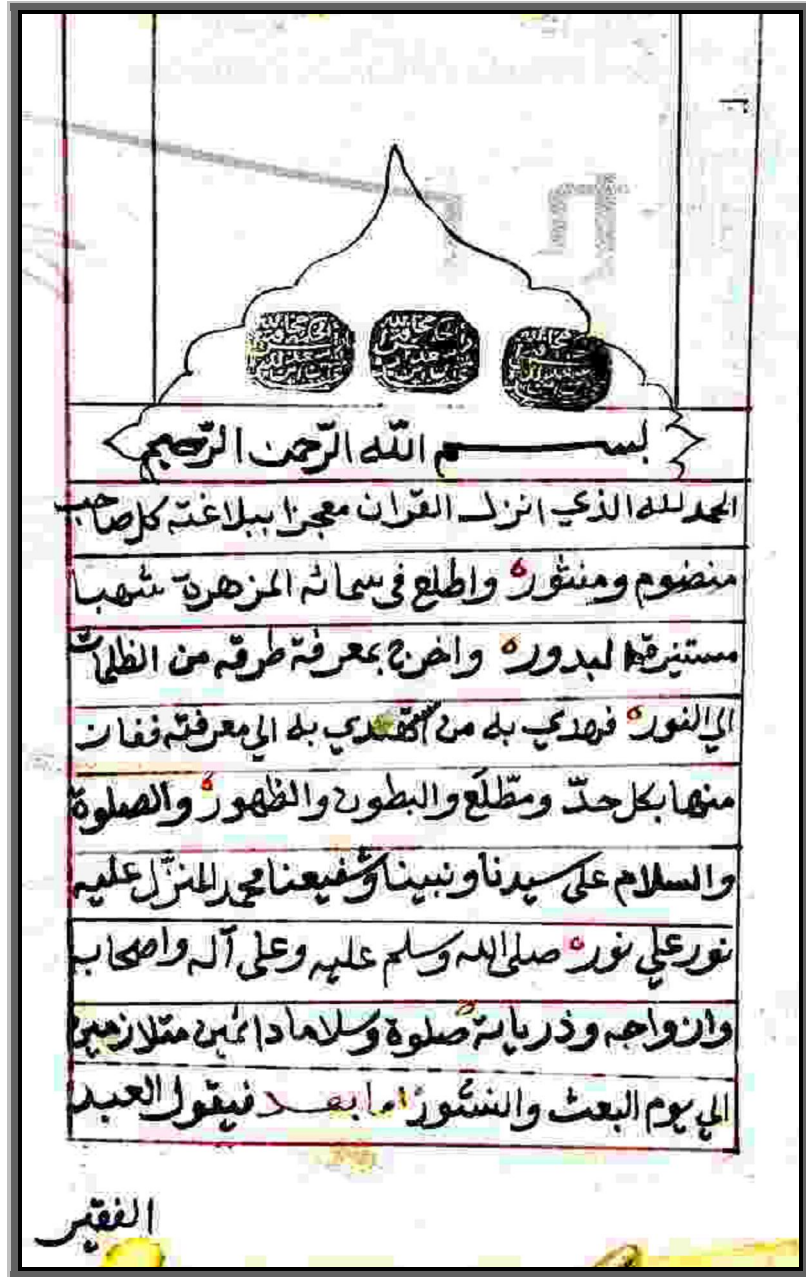 بسم الله الرّحمن الرّحيم
الحمد لله الذي انزل القران معجزا ببلاغته كل صاحب
منضوم ومنثور واطلع في سمائه المزهرة شهبا
مستنيرة البدور واخرج بمعرفة طرقه من الظلمات
الي النور فهدي به من اهتدي به الي معرفته ففاز
منها بكل حدّ ومطّلع والبطون والظهور والصلوة
والسلام على سيدنا ونبينا وشفيعنا محمد المنزّل عليه
نور علي نور صلى الله وسلم عليه وعلى آله واصحابه
وازواجه وذرياته صلوة وسلاما دائمين متلازمين
الي يوم البعث والنشور اما بعد فيقول العبد
الفقير